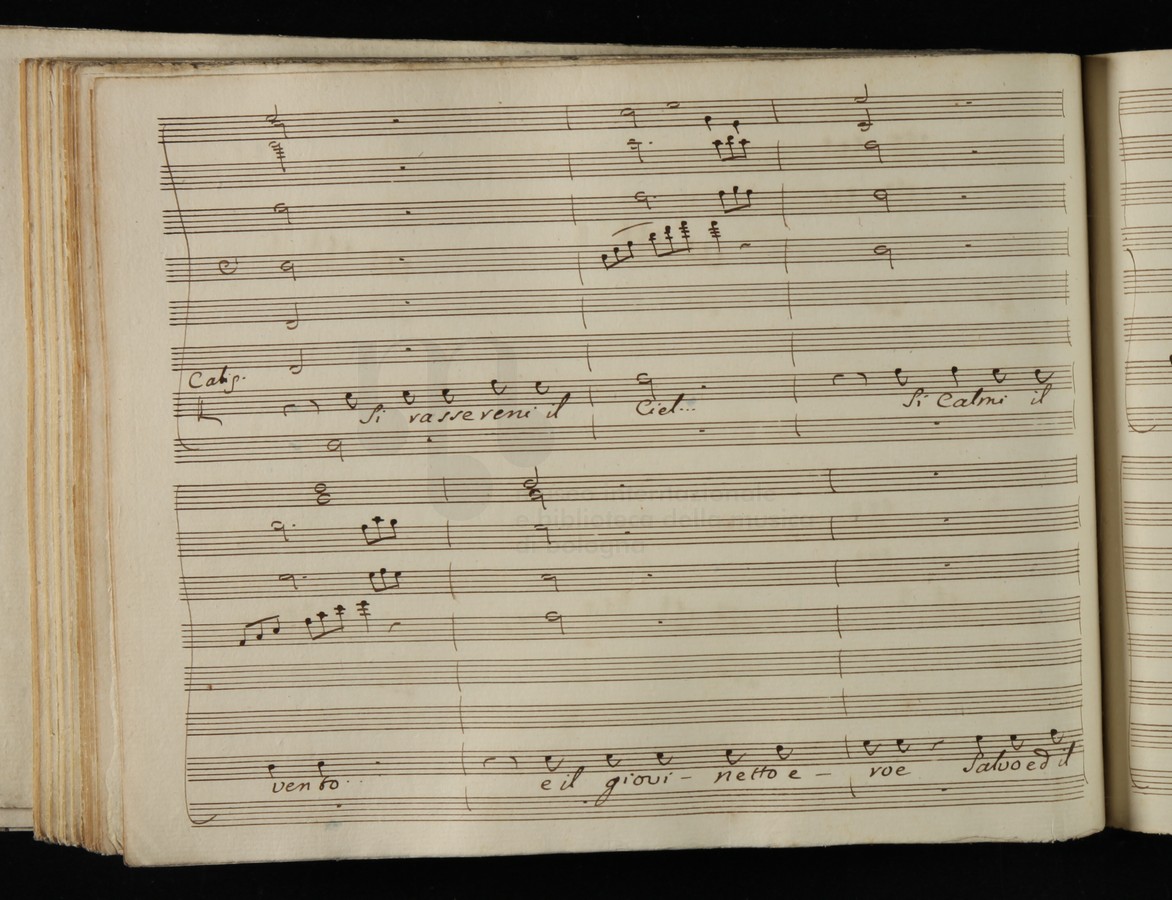 Calip.
Si rassereni il Ciel... Si Calmi il
museo internazionale
e biblioteca della musica
di bologna
vento...
e il giovi - netto e - roe Salvo ed il